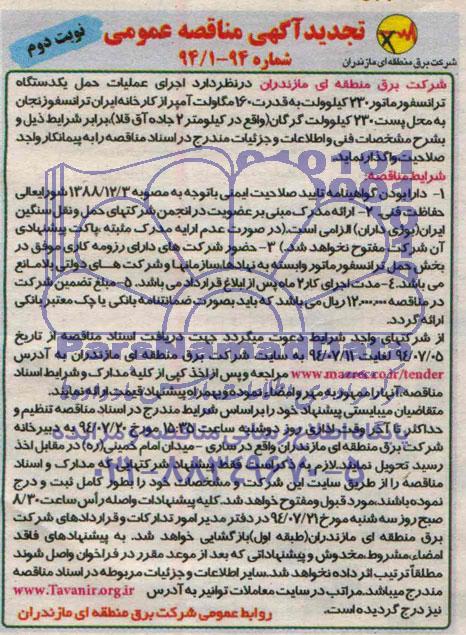 نوبت دوم
تجدید آگهی مناقصه عمومی
شماره ۹۴-۹۴/۱
شرکت برق منطقه ای مازندران
شرکت برق منطقه ای مازندران درنظردارد اجرای عملیات حمل یکدستگاه
ترانسفورماتور ۲۳۰ کیلوولت به قدرت ۱۶۰ مگاولت آمپر از کارخانه ایران ترانسفو زنجان
به محل پست ۲۳۰ کیلوولت گرگان(واقع در کیلومتر ۲ جاده آق قلا)برابر شرایط ذیل و
بشرح مشخصات فنی و اطلاعات و جزئیات مندرج در اسناد مناقصه را به پیمانکار واجد
صلاحیت واگذار نماید.
شرایط مناقصه:
۱- دارا بودن گواهینامه تایید صلاحیت ایمنی باتوجه به مصوبه ۱۳۸۸/۱۲/۳ شورایعالی
حفاظت فنی. ۲- ارائه مدرک مبنی بر عضویت در انجمن شرکتهای حمل و نقل سنگین
ایران(بوژی داران) الزامی است.(در صورت عدم ارایه مدرک مثبته پاکت پیشنهادی
آن شرکت مفتوح نخواهد شد.) ۳- حضور شرکت های دارای رزومه کاری موفق در
بخش حمل ترانسفورماتور وابسته به نهادها،سازمانها و شرکت های دولتی بلامانع
می باشد. ۴- مدت اجرای کار ۲ ماه پس از ابلاغ قرارداد می باشد. ۵- مبلغ تضمین شرکت
در مناقصه ریال می باشد که باید بصورت ضمانتنامه بانکی یا چک معتبر بانکی
ارائه گردد.
از شرکتهای واجد شرایط دعوت میگردد جهت دریافت اسناد مناقصه از تاریخ
۹۴/۰۷/۰۵ لغایت ۹۴/۰۷/۱۱ به سایت شرکت برق منطقه ای مازندران به آدرس
www.mazrec.co.ir/tender مراجعه و پس از اخذ کپی از کلیه مدارک و شرایط اسناد
مناقصه، آنها را ممهور به مهر و امضاء نموده و بهمراه پیشنهاد قیمت ارائه نمایند.
متقاضیان میبایستی پیشنهاد خود را بر اساس شرایط مندرج در اسناد مناقصه تنظیم و
حداکثر تا آخر وقت اداری روز دوشنبه ساعت ۱۵:۳۵ مورخ ۹۴/۰۷/۲۰ به دبیرخانه
شرکت برق منطقه ای مازندران واقع در ساری - میدان امام خمینی(ره) در مقابل اخذ
رسید تحویل نمایند.لازم به ذکر است فقط پیشنهاد شرکتهایی که مدارک و اسناد
مناقصه را از طریق سایت این شرکت و مشخصات خود را بطور کامل ثبت و درج
نموده باشند،مورد قبول و مفتوح خواهد شد.کلیه پیشنهادات واصله رأس ساعت ۸/۳۰
صبح روز سه شنبه مورخ ۹۴/۰۷/۲۱ در دفتر مدیر امور تدارکات و قراردادهای شرکت
برق منطقه ای مازندران(طبقه اول)بازگشایی خواهد شد. به پیشنهادهای فاقد
امضاء،مشروط،مخدوش و پیشنهاداتی که بعد از موعد مقرر در فراخوان واصل شوند
مطلقاً ترتیب اثر داده نخواهد شد.سایر اطلاعات و جزئیات مربوطه در اسناد مناقصه
مندرج میباشد.مراتب در سایت معاملات توانیر به آدرس www.Tavanir.org.ir
نیز درج گردیده است.
روابط عمومی شرکت برق منطقه ای مازندران